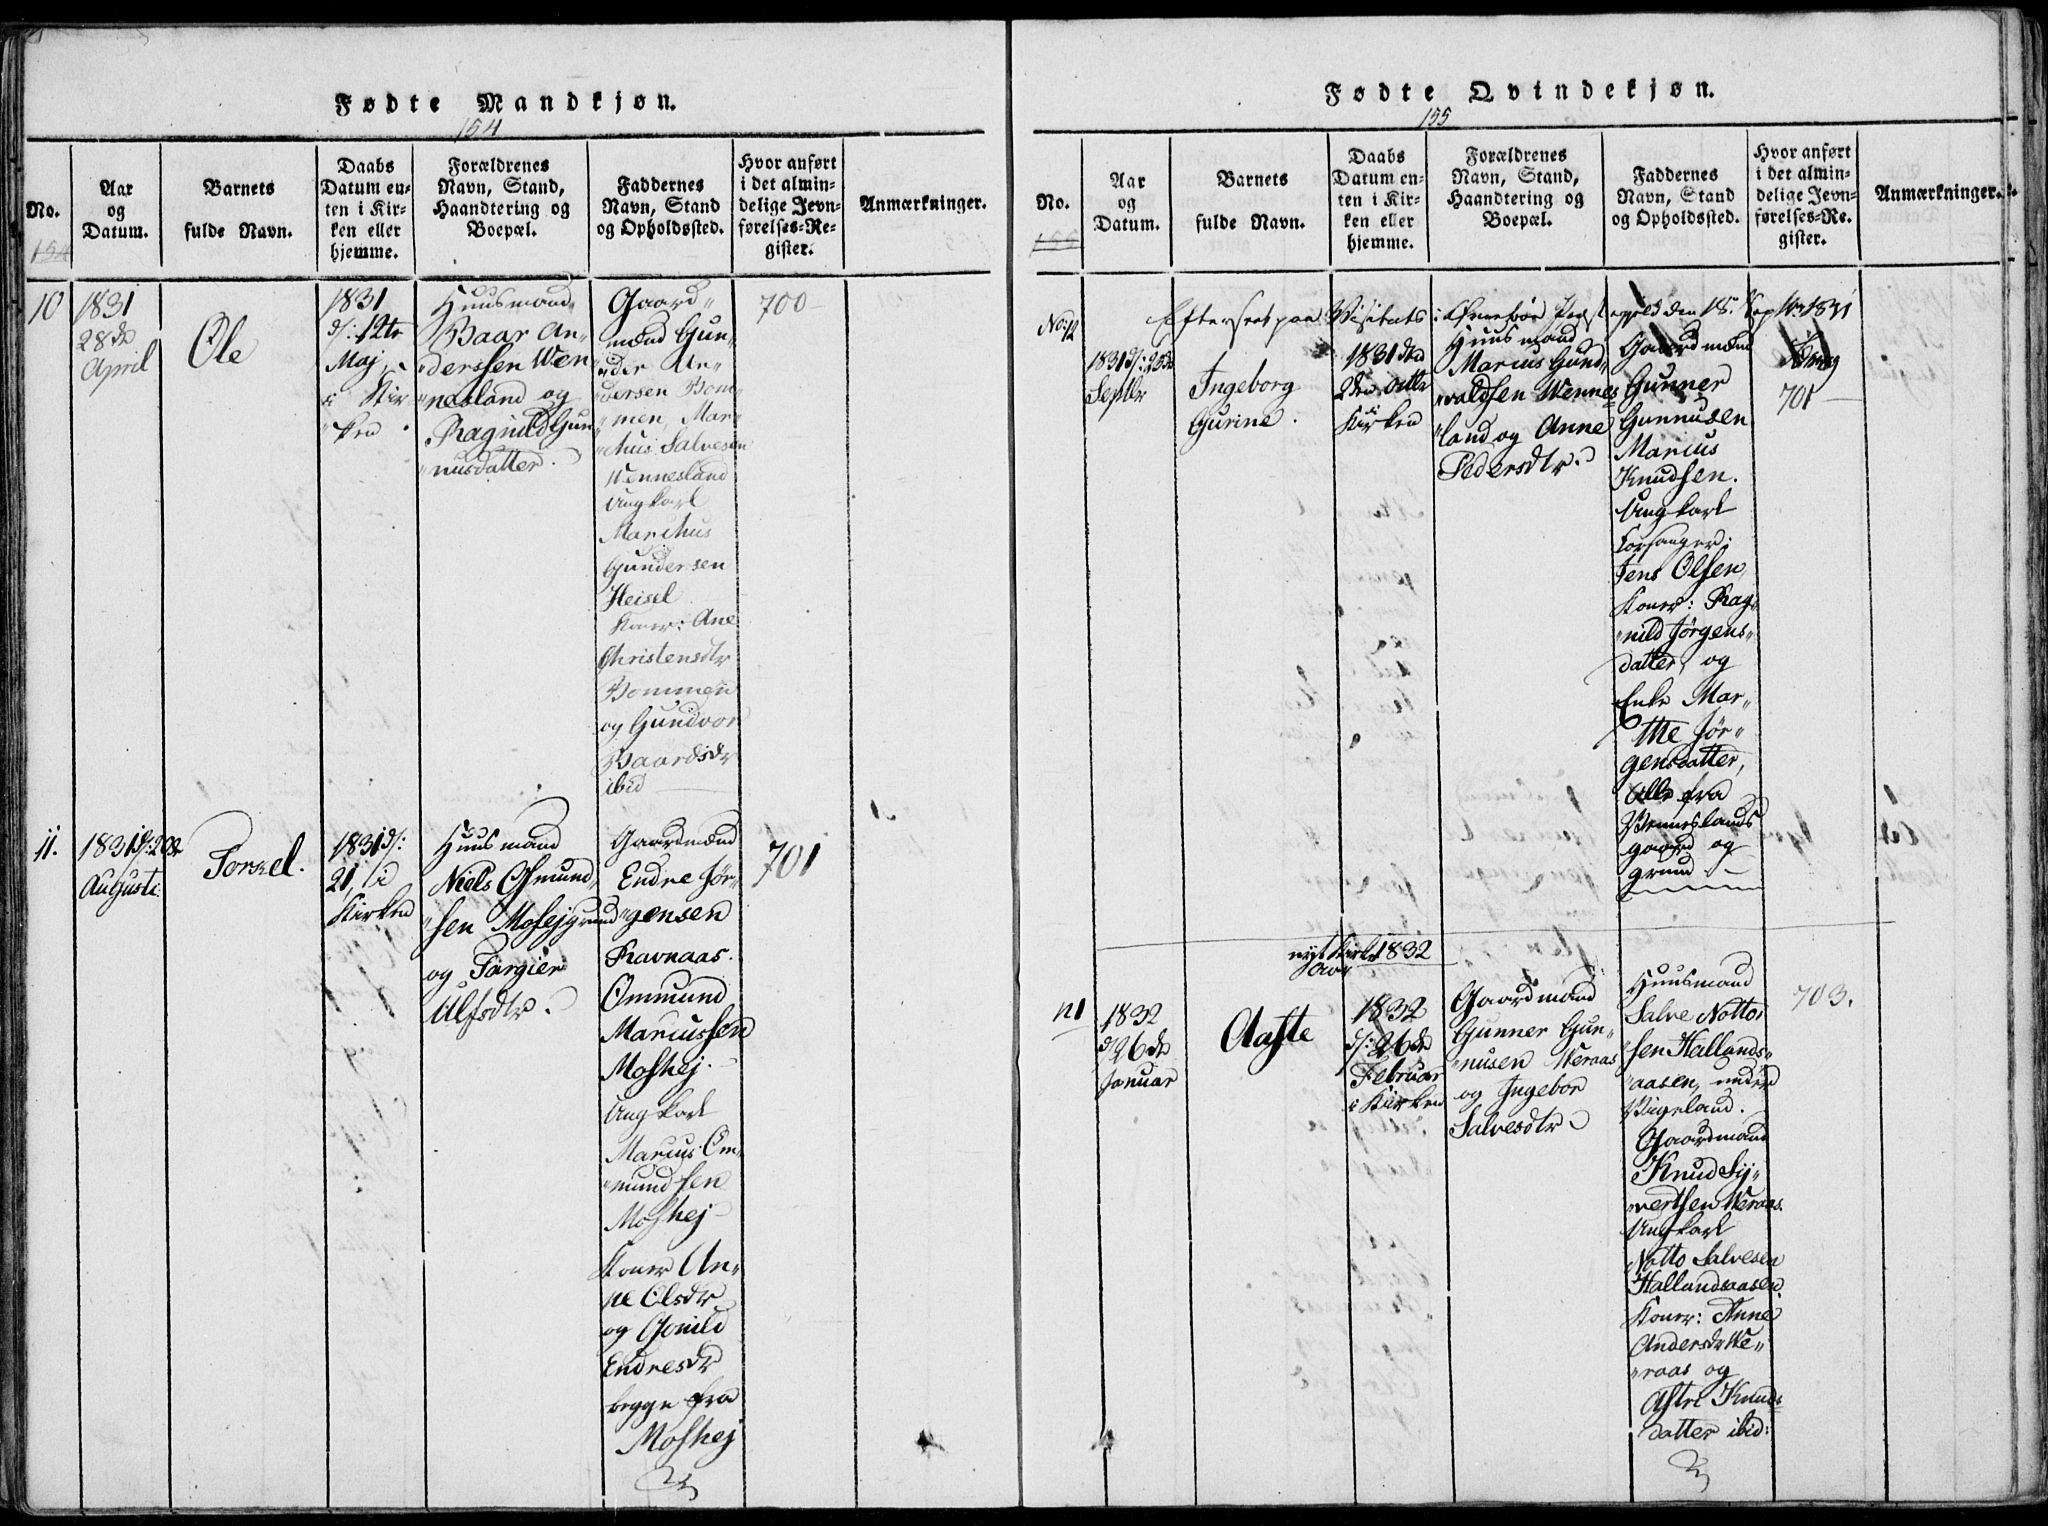 Fødte Mandkjøn.
154
No.
Aar
og
Datum.
Barnets
fulde Navn.
Daabs
Datum en-
ten i Kir-
ken eller
hjemme.
Forældrenes
Navn, Stand,
Haandtering og
Boepæl.
Faddernes
Navn, Stand
og Opholdssted.
Hvor anført
i det almin-
delige Jevn-
førelses-Re-
gister.
Anmærkninger.
154
10
1831
28de
April
Ole
1831
d: 12te
Maj
i Kir
"ken.
Huusmand
Baar An-
"derssen Wen
"nesland og
Ragnild Gun
"nusdatter.
Gaard"
mænd Gun"
"der An"
"dersen Bom
"men, Mar"
"thus Salvesen
Wennesland
Ungkarl
Marthus
Gundersen
Heisel
Koner: Ane
Christensdtr
Bommen
og Gundvor
Baardsdr
ibid
700
11.
1831 d: 20de
Augusti.
Torkel.
1831 d:
21, i
Kirken
Huusmand
Niels Osmund"
"sen Mosejgrund
og Targier
Ulfsdtr.
Gaardmænd
Endre Jør"
"gensen
Ravnaas.
Ommund
Marcussen
Moshej.
Ungkarl
Marcus Om"
"mundsen
Moshej
Koner An"
ne Olsdtr
og Gonild
Endresdr
begge fra
Moshej
701
Fødte Qvindekjøn.
155
No.
Aar
og
Datum.
Barnets
fulde Navn.
Daabs
Datum en-
ten i Kir-
ken eller
hjemme.
Forældrenes
Navn, Stand,
Haandtering og
Boepæl.
Faddernes
Navn, Stand
og Opholdssted.
Hvor anført
i det almin-
delige Jevn-
førelses-Re-
gister.
Anmærkninger.
155
Efterseet paa Visitats i Øvrebøe den 15. 1831
No: 12
1831 d: 23de
Septbr
Ingeborg
Gurine.
1831 den
2den Octbr
Kirken
Huusmand
Marius Gund"
"valdsen Wennes
"land og Anne
Pedersdtr.
Gaardmænd
Gunner
Gunnusen
Marius
Knudsen.
Ungkarl
Forsanger:
Jens Olsen,
Koner: Rag"
"nild Jørgens"
datter, og
Enke Mar"
the Jør"
gensdatter,
Alle fra
Venneslands
gaard og
grund.
701
nyt Kirke 1832
Aar
n1
1832
d 26de
Januar
Aaste
1832
d: 26de
Februar
i Kirken
Gaardmand
Gunner Gun"
"nusen Weraas
og Ingebor
Salvesdtr
Huusmand
Salve Notto"
"sen Hallands"
"aasen, under
Vigeland.
Gaardmand
Knud Sy"
"vertsen Weraas
Ungkarl
Notto Salvesen
Hallandsaasen
Koner: Anne
Andersdr We"
"raas og
Astri Knuds
datter ibid:
703.